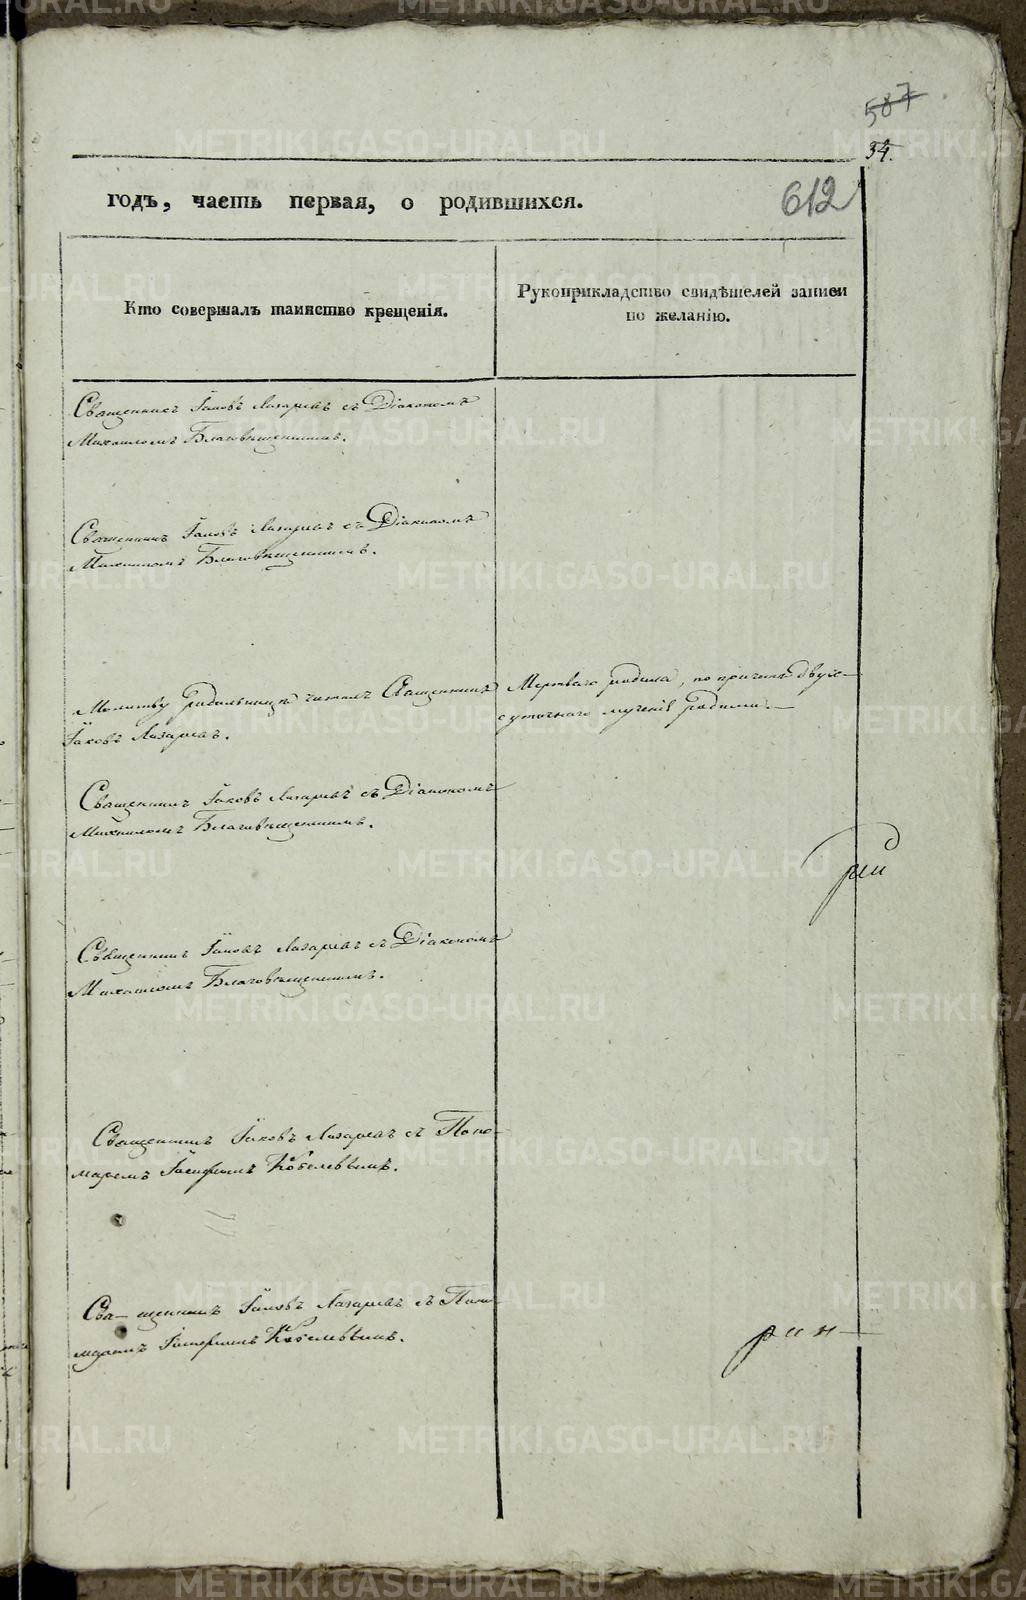 587
34.
612
годъ, часть первая, о родившихся.
Кто совершалъ таинство крещенія.
Рукоприкладство свидѣтелей записи
по желанію.
Священникъ Іаковъ Лазаревъ съ Діакономъ
Михаиломъ Благовѣщенскимъ.
Священникъ Іаковъ Лазаревъ съ Діакономъ
Михаиломъ Благовѣщенскимъ.
Молитву Родильницѣ читалъ Священникъ
Іаковъ Лазаревъ.
Мертваго родила, по причинѣ двух-
суточнаго мученія Родами.
Священникъ Іаковъ Лазаревъ съ Діакономъ
Михаиломъ Благовѣщенскимъ.
Священникъ Іаковъ Лазаревъ съ Діакономъ
Михаиломъ Благовѣщенскимъ.
Священникъ Іаковъ Лазаревъ съ Поно-
маремъ Іосифомъ Кобелевымъ.
Свя- щенникъ Іаковъ Лазаревъ съ Поно-
маремъ Іосифомъ Кобелевымъ.
METRIKI.GASO-URAL.RU